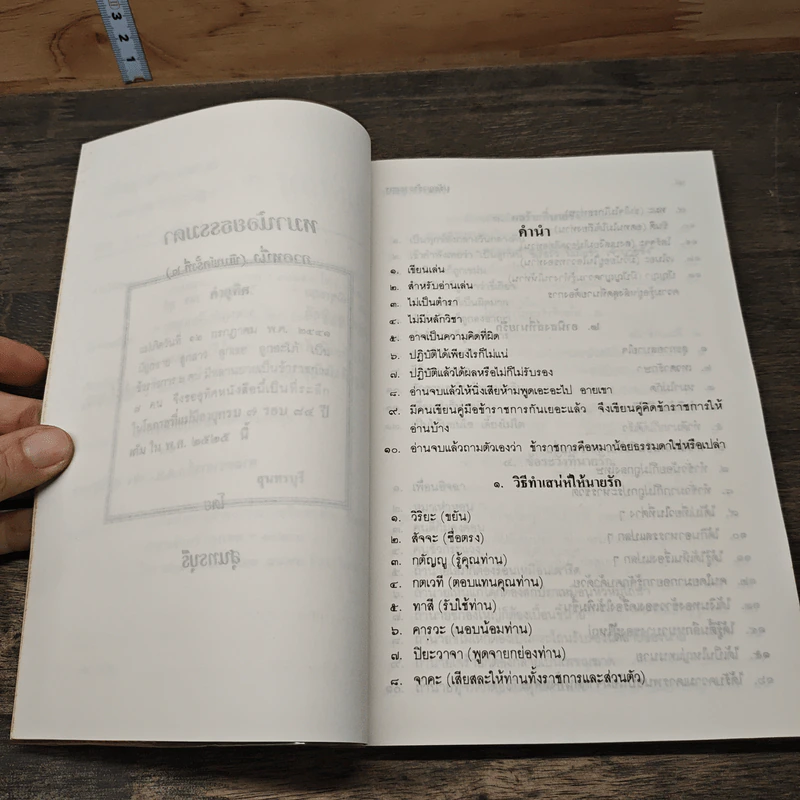 3
2
1
คำนำ
๑. เขียนเล่น
๒. สำหรับอ่านเล่น
๓. ไม่เป็นตำรา
๔. ไม่มีหลักวิชา
๕. อาจเป็นความคิดที่ผิด
๖. ปฏิบัติได้เพียงไรก็ไม่แน่
๗. ปฏิบัติแล้วได้ผลหรือไม่ก็ไม่รับรอง
๘. อ่านจบแล้วให้นิ่งเสียห้ามพูดเอะอะไป อายเขา
๙. มีคนเขียนคู่มือข้าราชการกันเยอะแล้ว จึงเขียนคู่คิดข้าราชการให้
อ่านบ้าง
๑๐. อ่านจบแล้วถามตัวเองว่า ข้าราชการคือหมาน้อยธรรมดาใช่หรือเปล่า
๑. วิธีทำเสน่ห์ให้นายรัก
๑. วิริยะ (ขยัน)
๒. สัจจะ (ซื่อตรง)
๓. กตัญญู (รู้คุณท่าน)
๔. กตเวที (ตอบแทนคุณท่าน)
๕. ทาสี (รับใช้ท่าน)
๖. คารวะ (นอบน้อมท่าน)
๗. ปิยะวาจา (พูดจายกย่องท่าน)
๘. จาคะ (เสียสละให้ท่านทั้งราชการและส่วนตัว)